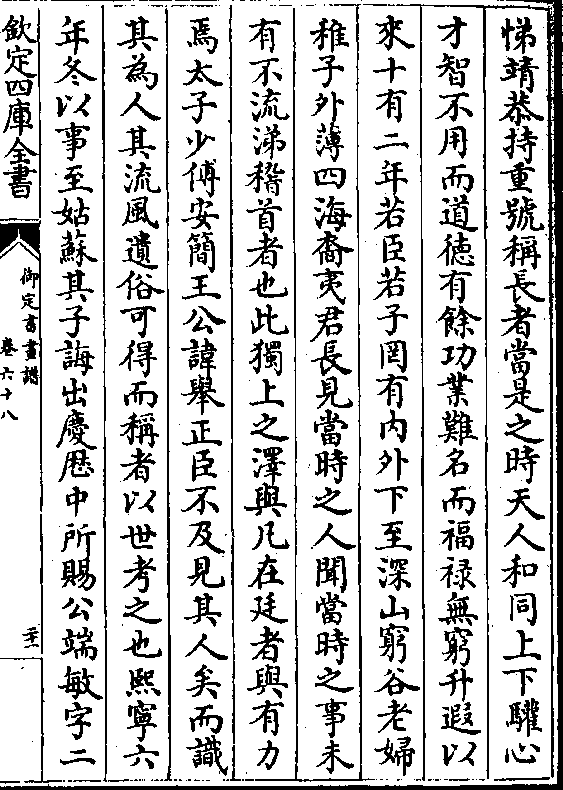 悌靖恭持重號稱長者當是之時天人和同上下驩心
才智不用而道德有餘功業難名而福祿無窮升遐以
來十有二年若臣若子罔有內外下至深山窮谷老婦
稚子外薄四海裔夷君長見當時之人聞當時之事未
有不流涕稽首者也此獨上之澤與凡在廷者與有力
焉太子少傅安簡王公諱舉正臣不及見其人矣而識
其為人其流風遺俗可得而稱者以世考之也熙寧六
年冬以事至姑蘇其子誨出慶厯中所賜公端敏字二
欽定四庫全書
御定書畫譜
卷六十八